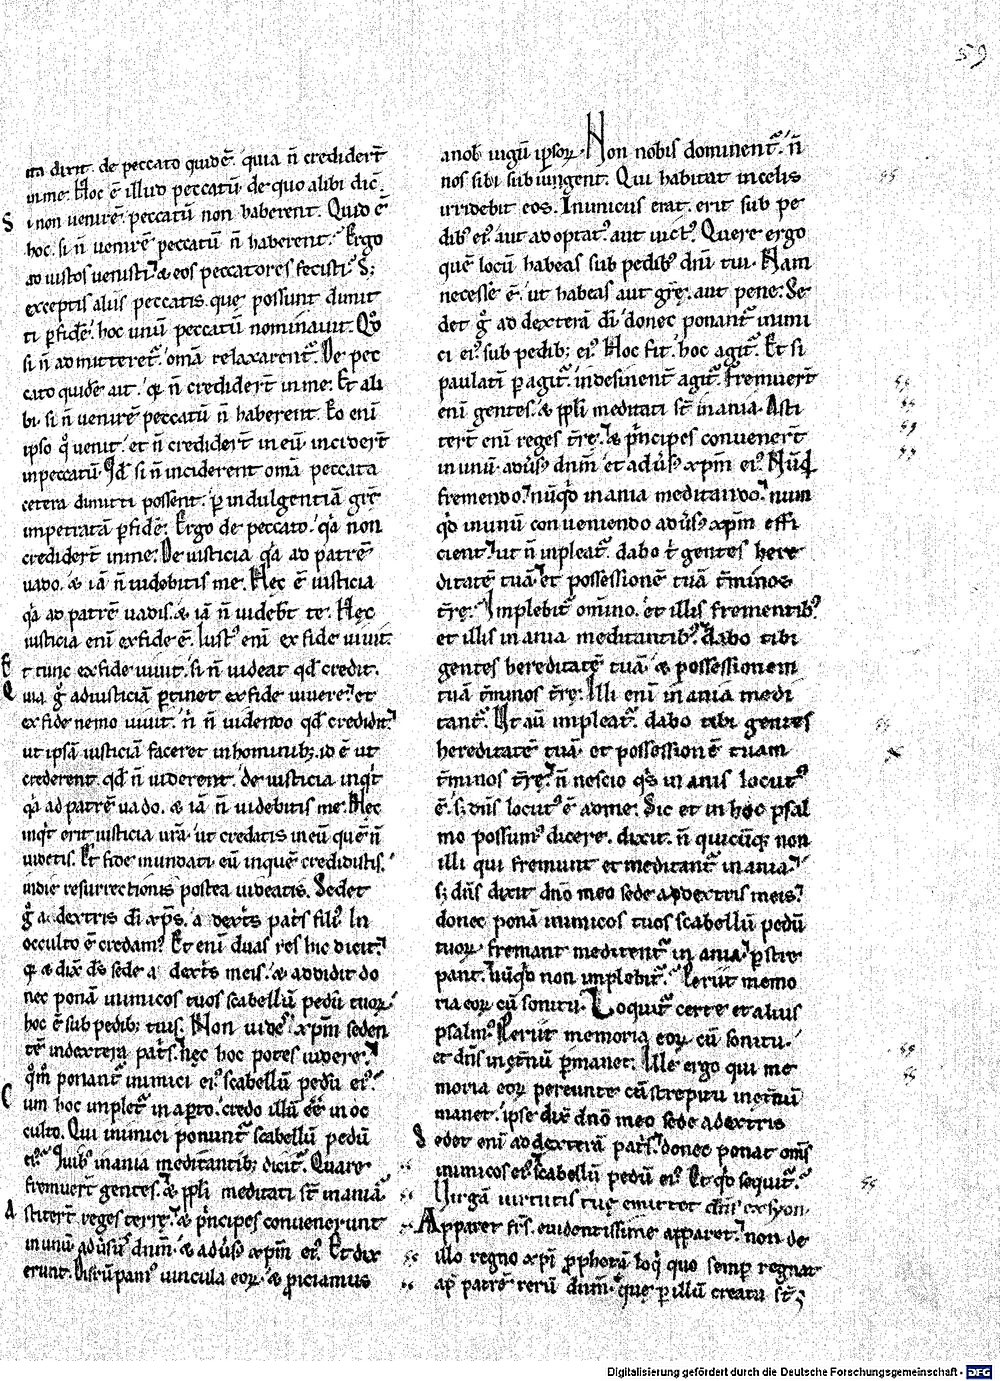 59
ita dixit. de peccato quidē. quia n̄ credidert̄
in me. Hoc ē illud peccatū de quo alibi dic̄.
Si non venirē peccatū non haberent. Quid ē
hoc. si n̄ venirē peccatū n̄ haberent. Ergo
ad iustos venisti. & eos peccatores fecisti. S;
exceptis aliis peccatis. quę possunt dimit
ti p̄fidē. hoc unū peccatū nominavit. Qd̓
si n̄ admitteret᷑. om̄a relaxarent᷑. De pec
cato quidē ait. q̄ n̄ credidert̄ in me. Et ali
bi. si n̄ venirē peccatū n̄ haberent. Eo enī
ipso q̊ venit. et n̄ crediderт̄ in eū. inciderт̄
in peccatū. Qd̄ si n̄ inciderent om̄a peccata
cetera dimitti possent. p̱ indulgentiā grę̄
impetratā p̄fidē. Ergo de peccato. q̓a non
crediderт̄ in me. De iusticia q̓a ad patrē
vado. & iā n̄ videbitis me. Hęc ē iusticia
q̓a ad patrē vadis. & iā n̄ videbt̄ te. Hęc
iusticia enī ex fide ē. Iust᾽ enī ex fide vivit.
Et tunc ex fide vivit. si n̄ videat qd̄ credit.
Quia g̊ ad iusticiā p̱tinet ex fide vivere. et
ex fide nemo vivit. n̓ n̄ videndo qd̄ credidit.
ut ipsā iusticiā faceret in hominib; id ē ut
crederent. qd̄ n̄ viderent. de iusticia inq̓t
q̓a ad patrē vado. & iā n̄ videbitis me. Hęc
inq̓t erit iusticia vr̄a. ut credatis in eū quē n̄
videtis. Et fide mundati eū in quē credidistis.
in die resurrectionis postea videatis. Sedet
g̊ a dextris dī xp̄s. a dext̄s pat̓s fili᾽. In
occulto ē credam᾽. Et enī duas res hic dicit.
q̄ & dix̄ dn̄s sede a dext̄s meis. & addidit do
nec ponā inimicos tuos scabellū pedū tuoꝝ.
hoc ē sub pedib; tuis. Non vides xp̄m seden
tē in dextera pat̓s. nec hoc potes videre.
q̊m̊ ponant᷑ inimici ei᾽ scabellū pedū ei᾽.
Cum hoc implet᷑ in ap̱to. credo illū ēē in oc
culto. Qui inimici ponunt᷑ scabellū pedū
ei᾽. Quib᾽ inania meditantib; dicit᷑. Quare
fremuerт̄ gentes. & ppl̓i meditati st̄ inania.
Astiterт̄ reges terrę. & p̓ncipes convenerunt
in unū. adūsū dn̄m. & adūs᾽ xp̄m ei᾽. Et dix
erunt. Disrūpam᾽ vincula eoꝝ. & p̱iciamus
a nob᾽ iugū ipsoꝝ. Non nobis dominent᷑. n̄
nos sibi subiungent. Qui habitat in celis
irridebit eos. Inimicus erat. erit sub pe
dib᾽ ei᾽. aut adoptat᾽. aut vict᾽. Quere ergo
quē locū habeas sub pedib᾽ dn̄i tui. Nam
necesse ē. ut habeas aut grę̄. aut penę. Se
det g̊ ad dexterā dī. donec ponant᷑ inimi
ci ei᾽ sub pedib; ei᾽. Hoc fit. hoc agit᷑. Et si
paulatī p̱agit᷑. indesinent̄ agit᷑. Fremuerт̄
enī gentes. & ppl̓i meditati st̄ inania. Asti
terт̄ enī reges tr̄ę. & p̓ncipes convenerт̄
in unū. adūs᾽ dn̄m. et adūs᾽ xp̄m ei᾽. Nūq̓d
fremendo. nūq̓d inania meditando. num
q̓d in unū conveniendo adūs᾽ xp̄m effi
cient. ut n̄ inpleat᷑. dabo t̓ gentes here
ditatē tuā. et possessionē tuā t̄minos
tr̄ę. Implebit᷑ omīno. et illis frementib᾽.
et illis inania meditantib᾽. dabo tibi
gentes hereditatē tuā. & possessionem
tuā t̄minos tr̄ę. Illi enī inania medi
tant᷑. Ut aū impleat᷑. dabo tibi gentes
hereditatē tuā. et possessionē tuam
t̄minos tr̄ę. n̄ nescio q̓s inanis locut᾽
ē. s; dn̄s locut᾽ ē ad me. Sic et in hoc psal
mo possum᾽ dicere. dixit. n̄ quicūq; non
illi qui fremunt et meditant᷑ inania.
s; dn̄s dixit dn̄o meo sede a dextris meis.
donec ponā inimicos tuos scabellū pedū
tuoꝝ. fremant meditent᷑ inania. p̱stre
pant. nūq̓d non implebit᷑. Perīit memo
ria eoꝝ cū sonitu. Loquit᷑ certe et alius
psalm᾽. Perīit memoria eoꝝ cū sonitu.
et dn̄s in et̄nū p̱manet. Ille ergo qui me
moria eoꝝ pereunte cū strepitu in et̄nū
manet. ipse dix̄ dn̄o meo sede a dextris
Sedet enī ad dexterā pat̓s. donec ponat om̄s
inimicos ei᾽ scabellū pedū ei᾽. Et q̓d sequit᷑.
Virgā virtutis tuę emittet dn̄s ex syon.
Apparet fr̄s. evidentissime apparet. non de
illo regno xp̄i p̱phetā loq̓ quo semp̱ regnat
ap̓ patrē rerū dn̄m. quę p̱ illū creata st̄;
Digitalisierung gefördert durch die Deutsche Forschungsgemeinschaft - DFG